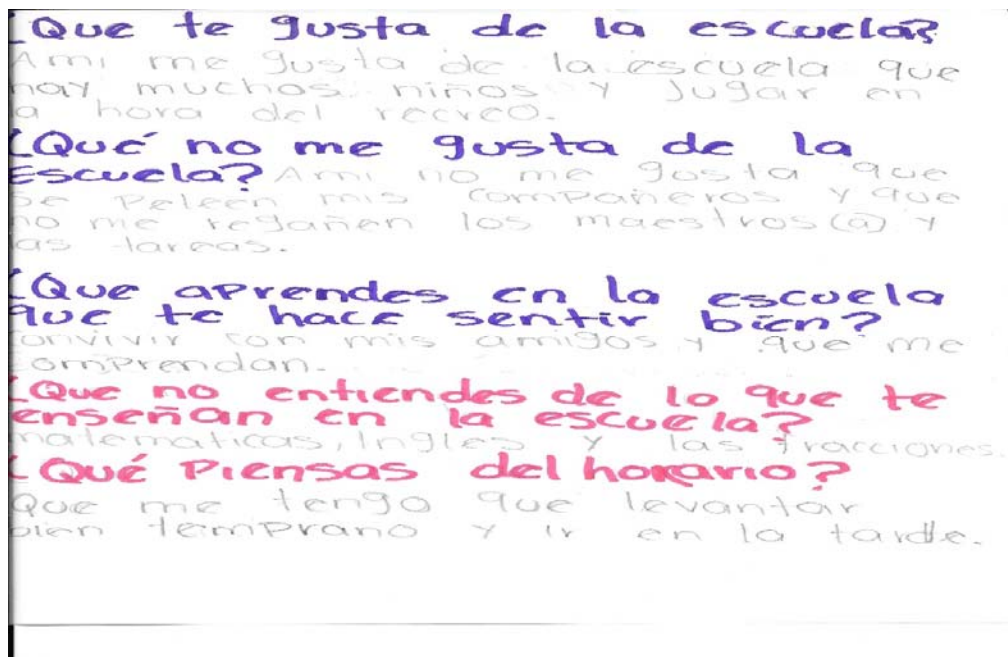 ¿Que te gusta de la escuela?
Ami me gusta de la escuela que
hay muchos niños y jugar en
la hora del recreo.
¿Qué no me gusta de la
Escuela? Ami no me gusta que
se peleen mis compañeros y que
no me regañen los maestros(a) y
las tareas.
¿Que aprendes en la escuela
que te hace sentir bien?
Convivir con mis amigos y que me
comprendan.
¿Que no entiendes de lo que te
enseñan en la escuela?
matematicas, Ingles y las fracciones.
¿Qué Piensas del horario?
Que me tengo que levantar
bien temprano y ir en la tarde.